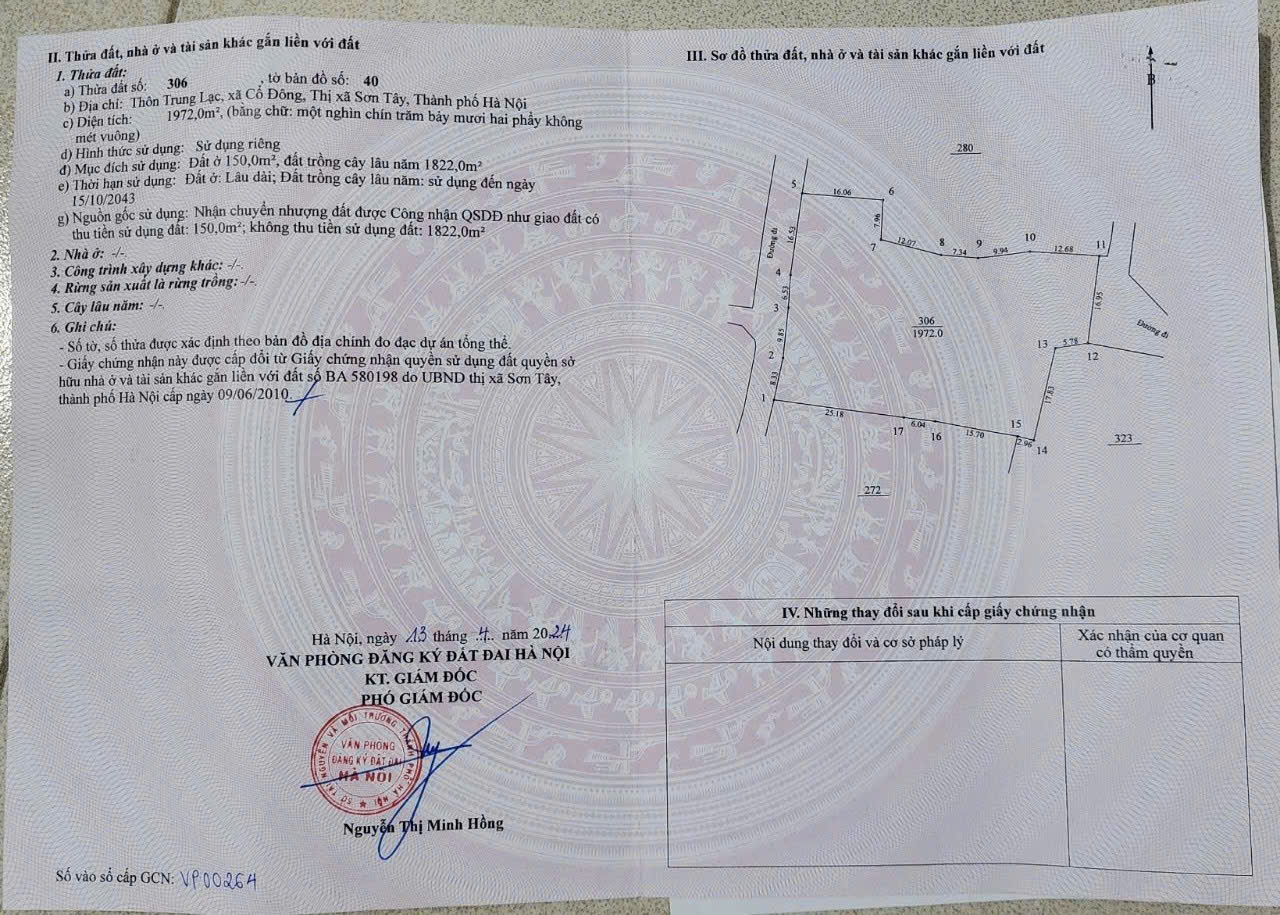 II. Thửa đất, nhà ở và tài sản khác gắn liền với đất
1. Thửa đất:
a) Thửa đất số: 306 , tờ bản đồ số: 40
b) Địa chỉ: Thôn Trung Lạc, xã Cổ Đông, Thị xã Sơn Tây, Thành phố Hà Nội
c) Diện tích: 1972,0m², (bằng chữ: một nghìn chín trăm bảy mươi hai phẩy không
mét vuông)
d) Hình thức sử dụng: Sử dụng riêng
đ) Mục đích sử dụng: Đất ở 150,0m², đất trồng cây lâu năm 1822,0m²
e) Thời hạn sử dụng: Đất ở: Lâu dài; Đất trồng cây lâu năm: sử dụng đến ngày
15/10/2043
g) Nguồn gốc sử dụng: Nhận chuyển nhượng đất được Công nhận QSDĐ như giao đất có
thu tiền sử dụng đất: 150,0m²; không thu tiền sử dụng đất: 1822,0m²
2. Nhà ở: -/-.
3. Công trình xây dựng khác: -/-.
4. Rừng sản xuất là rừng trồng: -/-.
5. Cây lâu năm: -/-.
6. Ghi chú:
- Số tờ, số thửa được xác định theo bản đồ địa chính đo đạc dự án tổng thể.
- Giấy chứng nhận này được cấp đổi từ Giấy chứng nhận quyền sử dụng đất quyền sở
hữu nhà ở và tài sản khác gắn liền với đất số BA 580198 do UBND thị xã Sơn Tây,
thành phố Hà Nội cấp ngày 09/06/2010.
Hà Nội, ngày 13 tháng 4 năm 2024
VĂN PHÒNG ĐĂNG KÝ ĐẤT ĐAI HÀ NỘI
KT. GIÁM ĐỐC
PHÓ GIÁM ĐỐC
SỞ TÀI NGUYÊN VÀ MÔI TRƯỜNG THÀNH PHỐ HÀ NỘI
VĂN PHÒNG
ĐĂNG KÝ ĐẤT ĐAI
HÀ NỘI
Nguyễn Thị Minh Hồng
Số vào sổ cấp GCN: VP00264
III. Sơ đồ thửa đất, nhà ở và tài sản khác gắn liền với đất
B
280
5
16.06
6
16.53
7.96
Đường đi
7
12.07
8
7.34
9
9.94
10
12.68
11
4
6.53
3
16.95
306
1972.0
Đường đi
9.85
2
13
5.78
12
8.33
1
17.83
25.18
17
6.04
16
15.70
15
2.96
14
323
272
IV. Những thay đổi sau khi cấp giấy chứng nhận
Nội dung thay đổi và cơ sở pháp lý
Xác nhận của cơ quan
có thẩm quyền